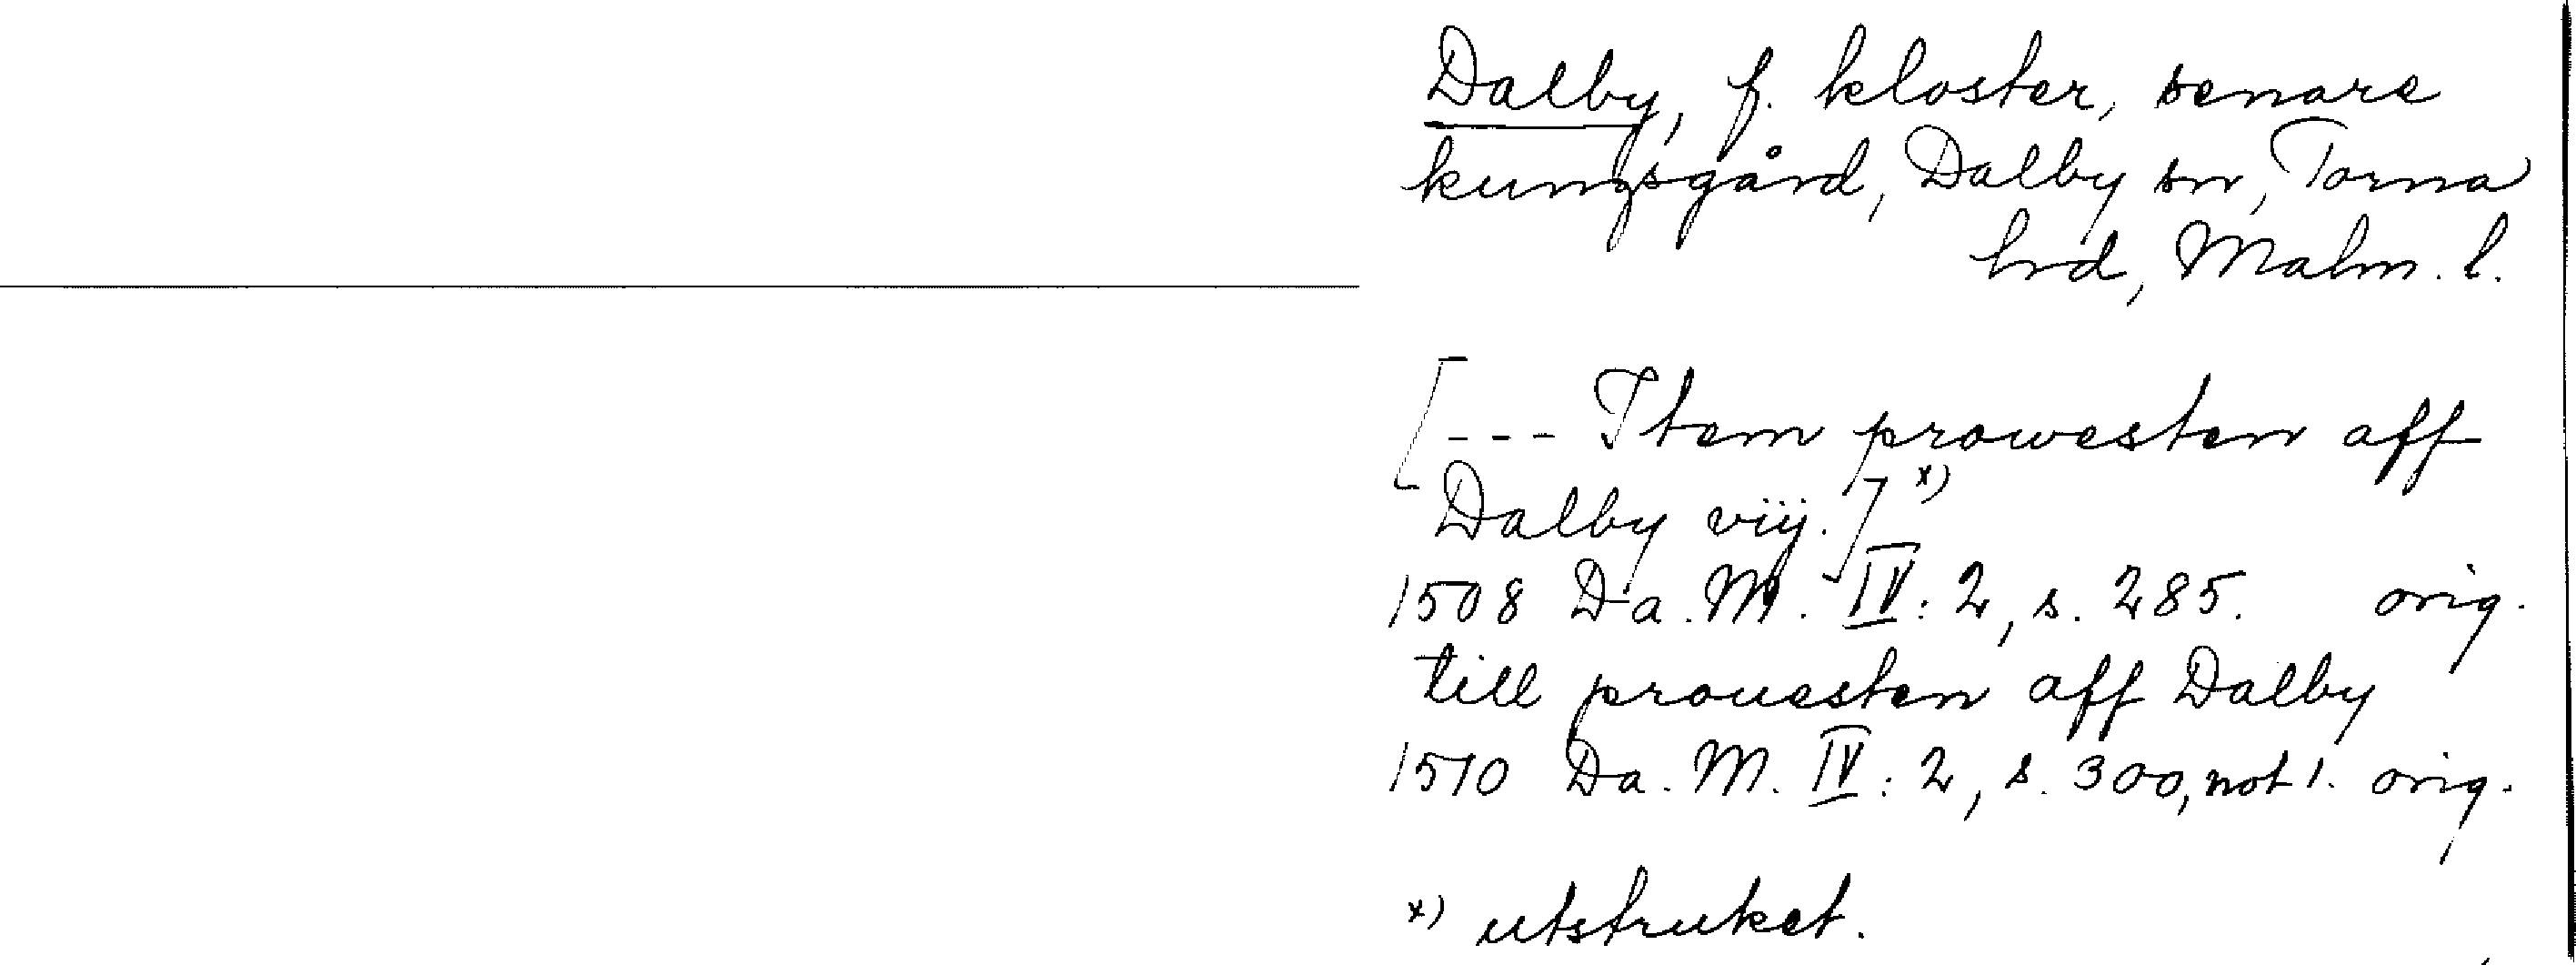 Dalby, f. kloster, senare
kungsgård, Dalby sn, Torna
hrd, Malm. l.
[--- Item prowesten aff
Dalby viij.] x)
1508 Da. M. IV: 2, s. 285. orig.
till prouesten aff Dalby
1510 Da. M. IV: 2, s. 300, not 1. orig.
x) utstruket.